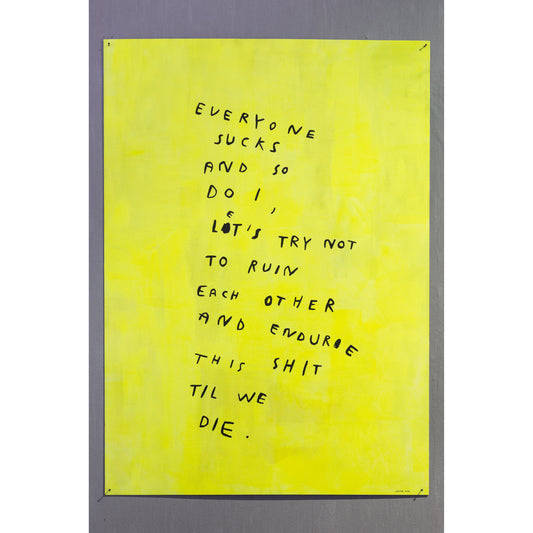 EVERYONE
SUCKS
AND SO
DO I,
LET'S TRY NOT
TO RUIN
EACH OTHER
AND ENDURE
THIS SHIT
TIL WE
DIE.